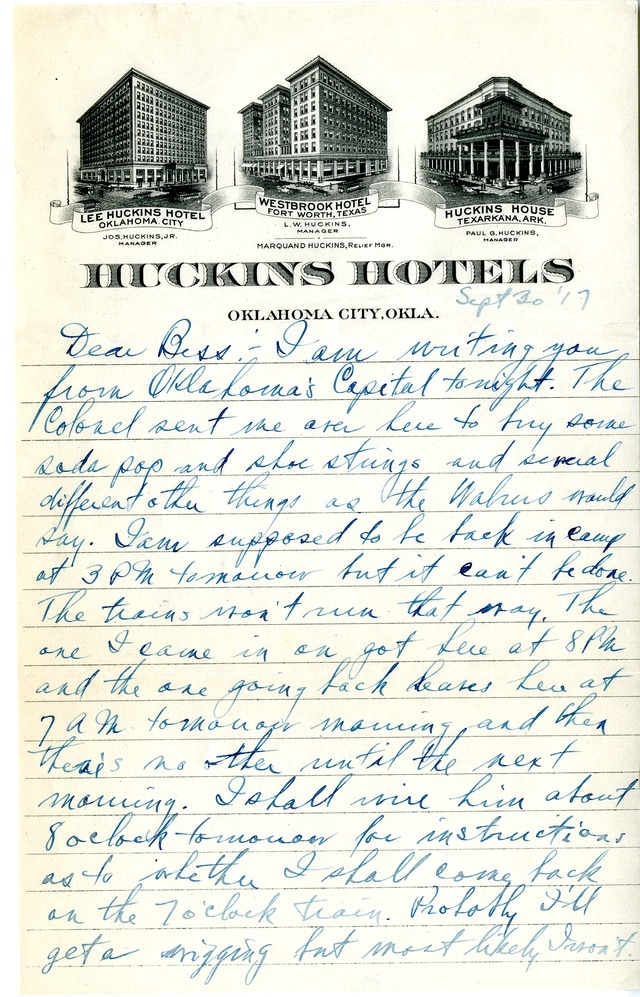 LEE HUCKINS HOTEL
OKLAHOMA CITY
JOS. HUCKINS, JR.
MANAGER
WESTBROOK HOTEL
FORT WORTH, TEXAS
L. W. HUCKINS,
MANAGER
MARQUAND HUCKINS, RELIEF MGR.
HUCKINS HOUSE
TEXARKANA, ARK.
PAUL G. HUCKINS,
MANAGER
HUCKINS HOTELS
Sept 30 '17
OKLAHOMA CITY, OKLA.
Dear Bess:- I am writing you
from Oklahoma's Capital tonight. The
Colonel sent me over here to buy some
soda pop and shoe strings and several
different other things as the Walrus would
say. I am supposed to be back in camp
at 3 PM tomorrow but it can't be done.
The trains won't run that way. The
one I came in on got here at 8 PM
and the one going back leaves here at
7 AM tomorrow morning and then
there's no other until the next
morning. I shall wire him about
8 oclock tomorrow for instructions
as to whether I shall come back
on the 7 o'clock train. Probably I'll
get a wigging but most likely I won't.